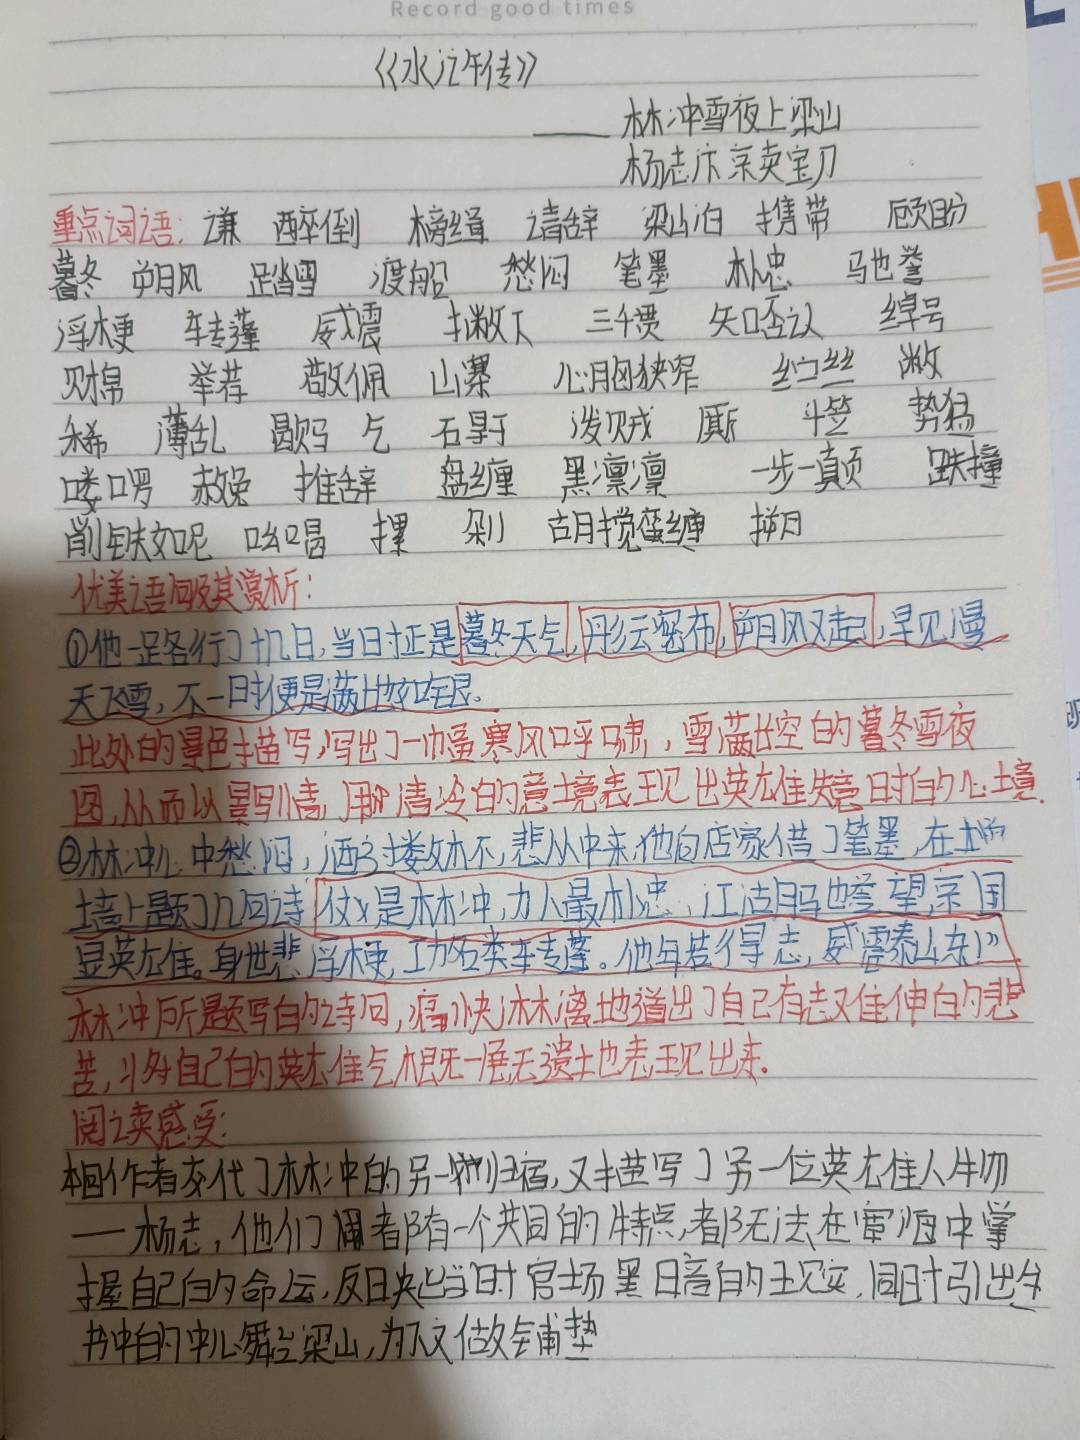 Record good times
《水浒传》
——林冲雪夜上梁山
杨志汴京卖宝刀
重点词语: 谦 醉倒 榜缉 请辞 梁山泊 携带 顾盼
暮冬 朔风 踏雪 渡船 愁闷 笔墨 朴忠 驰誉
浮梗 转蓬 威震 撇下 三千贯 知否认 绰号
财帛 举荐 敬佩 山寨 心胸狭窄 纻丝 撇
稀 薄乱 歇吗 乞 泼贼 厮 斗笠 势猛
喽啰 赦免 推辞 盘缠 黑凛凛 一步一颠 跌撞
削铁如泥 吆喝 摞 剁 胡搅蛮缠 搠
优美语句及其赏析:
①他一路行了十几日,当时正是暮冬天气,彤云密布,朔风又起,早见漫
天飞雪,不一时便是满地如银.
此处的景色描写,写出了一幅寒风呼啸,雪满长空的暮冬雪夜
图,从而以景写情,用清冷的意境表现出英雄失意时的心境.
②林冲心中愁闷,洒了数杯,悲从中来,他向店家借了笔墨,在
墙上题了几句诗"仗义是林冲,为人最朴忠,江湖驰誉望,京国
显英雄。身世悲浮梗,功名类转蓬。他年若得志,威震泰山东!"
林冲所题写的诗句,痛快淋漓地道出了自己有志难伸的悲
苦,将自己的英雄气概一展无遗地表现出来.
阅读感受:
本回作者交代了林冲的另一归宿,又描写了另一位英雄人物
——杨志,他们都有一个共同的特点,都无法在宦海中掌
握自己的命运,反映出当时官场黑暗的现实,同时引出全
书中的中心舞台梁山,为下文做铺垫